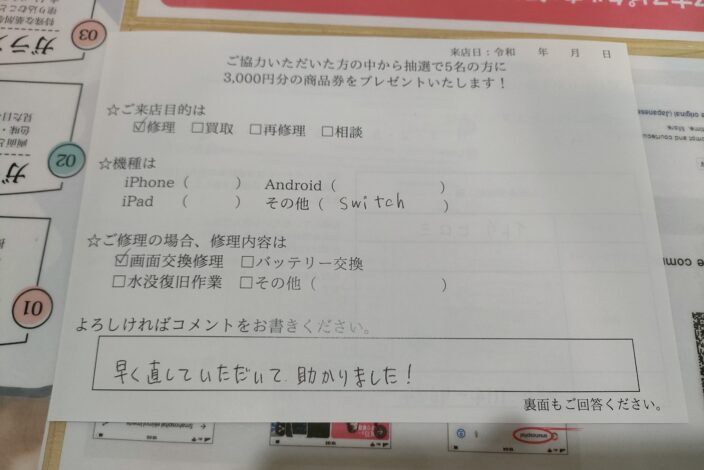 来店日：令和　　年　　月　　日
ご協力いただいた方の中から抽選で5名の方に
3,000円分の商品券をプレゼントいたします！
☆ご来店目的は
☑修理　□買取　□再修理　□相談
☆機種は
iPhone（　　　）　Android（　　　　　　）
iPad　（　　　）　その他（ switch 　　）
☆ご修理の場合、修理内容は
☑画面交換修理　□バッテリー交換
□水没復旧作業　□その他（　　　　　　）
よろしければコメントをお書きください。
早く直していただいて助かりました！
裏面もご回答ください。
03
02
01